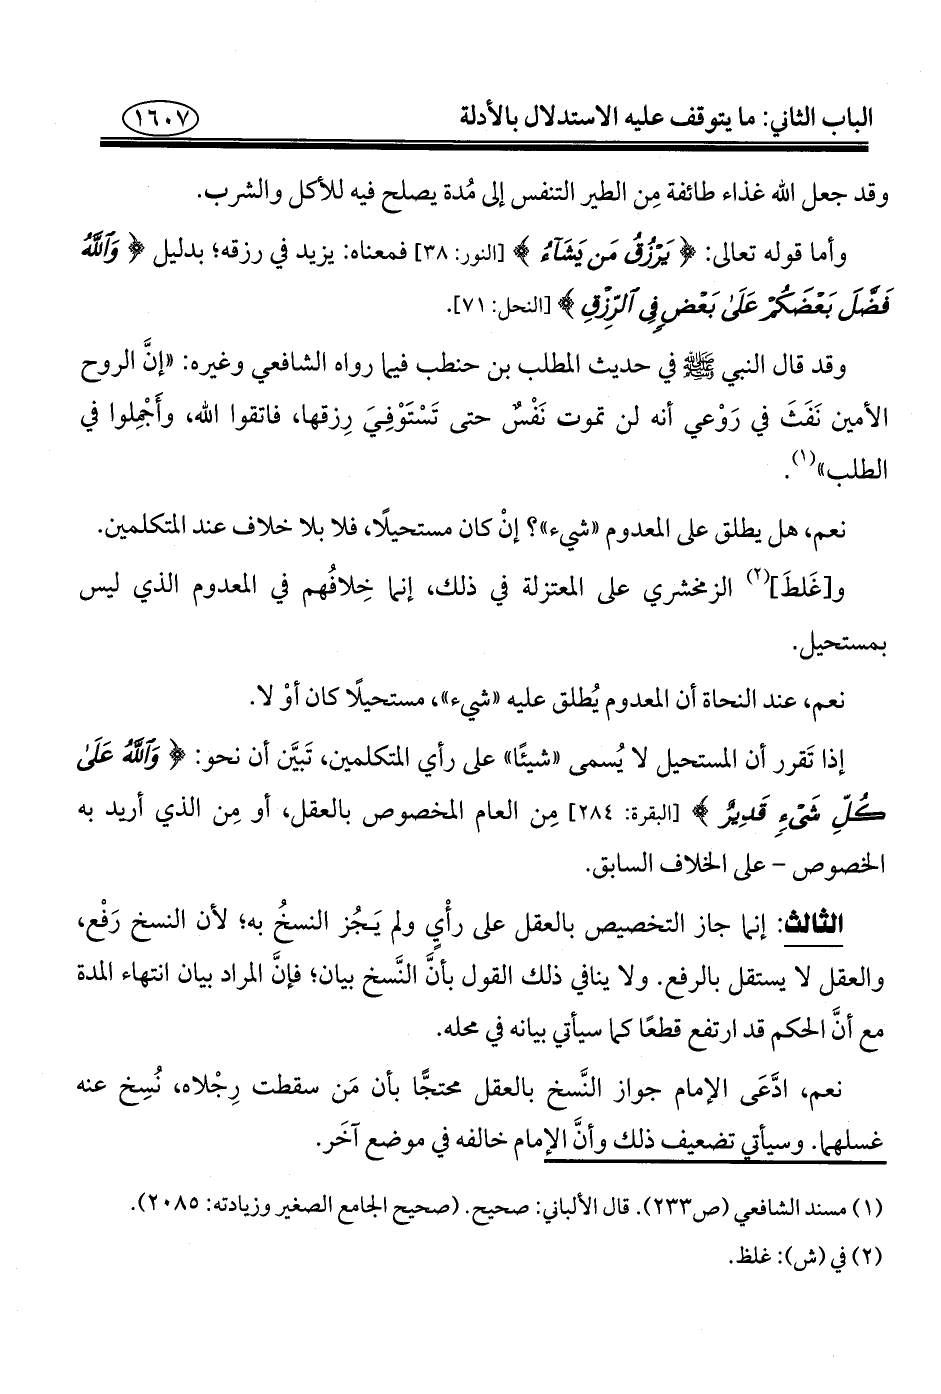 الباب الثاني: ما يتوقف عليه الاستدلال بالأدلة ١٦٠٧
وقد جعل الله غذاء طائفة مِن الطير التنفس إلى مُدة يصلح فيه للأكل والشرب.
وأما قوله تعالى: ﴿ يَرْزُقُ مَن يَشَآءُ ﴾ [النور: ٣٨] فمعناه: يزيد في رزقه؛ بدليل ﴿ وَٱللَّهُ
فَضَّلَ بَعْضَكُمْ عَلَىٰ بَعْضٍ فِي ٱلرِّزْقِ ﴾ [النحل: ٧١].
وقد قال النبي ﷺ في حديث المطلب بن حنطب فيما رواه الشافعي وغيره: «إنَّ الروح
الأمين نَفَثَ في رَوْعي أنه لن تموت نَفْسٌ حتى تَسْتَوْفِيَ رزقها، فاتقوا الله، وأَجْمِلوا في
الطلب»(١).
نعم، هل يطلق على المعدوم «شيء»؟ إنْ كان مستحيلًا، فلا بلا خلاف عند المتكلمين.
و[غَلطَ](٢) الزمخشري على المعتزلة في ذلك، إنما خِلافُهم في المعدوم الذي ليس
بمستحيل.
نعم، عند النحاة أن المعدوم يُطلق عليه «شيء»، مستحيلًا كان أوْ لا.
إذا تَقرر أن المستحيل لا يُسمى «شيئًا» على رأي المتكلمين، تَبيَّن أن نحو: ﴿ وَٱللَّهُ عَلَىٰ
كُلِّ شَىْءٍ قَدِيرٌ ﴾ [البقرة: ٢٨٤] مِن العام المخصوص بالعقل، أو مِن الذي أريد به
الخصوص - على الخلاف السابق.
الثالث: إنما جاز التخصيص بالعقل على رأْيٍ ولم يَجُز النسخُ به؛ لأن النسخ رَفْع،
والعقل لا يستقل بالرفع. ولا ينافي ذلك القول بأنَّ النَّسخ بيان؛ فإنَّ المراد بيان انتهاء المدة
مع أنَّ الحكم قد ارتفع قطعًا كما سيأتي بيانه في محله.
نعم، ادَّعَى الإمام جواز النَّسخ بالعقل محتجًّا بأن مَن سقطت رِجْلاه، نُسِخ عنه
غسلهما. وسيأتي تضعيف ذلك وأنَّ الإمام خالفه في موضع آخَر.
(١) مسند الشافعي (ص٢٣٣). قال الألباني: صحيح. (صحيح الجامع الصغير وزيادته: ٢٠٨٥).
(٢) في (ش): غلظ.